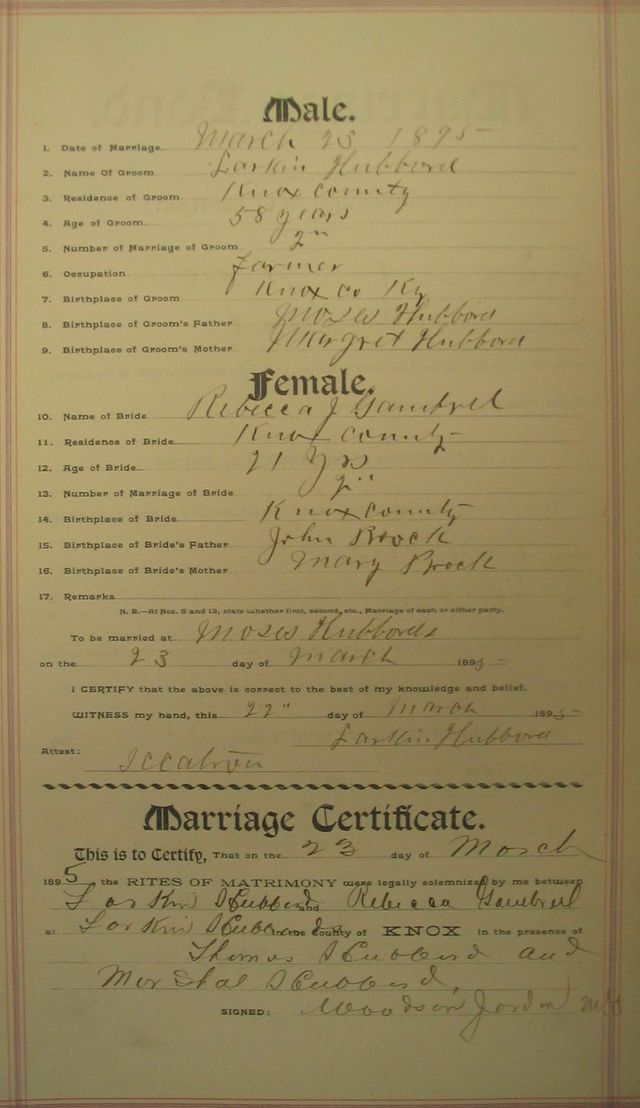 Male.
1. Date of Marriage March 23 1895
2. Name Of Groom Larkin Hubbord
3. Residence of Groom Knox county
4. Age of Groom 58 years
5. Number of Marriage of Groom 2"
6. Occupation farmer
7. Birthplace of Groom Knox co Ky
8. Birthplace of Groom's Father Moses Hubbord
9. Birthplace of Groom's Mother Margret Hubbord
Female.
10. Name of Bride Rebecca J Gambrel
11. Residence of Bride Knox county
12. Age of Bride 21 yrs
13. Number of Marriage of Bride 2"
14. Birthplace of Bride Knox county
15. Birthplace of Bride's Father John Brock
16. Birthplace of Bride's Mother Mary Brock
17. Remarks
N. B.—At Nos. 5 and 13, state whether first, second, etc., Marriage of each or either party.
To be married at Moses Hubbords
on the 23 day of March 1895
I CERTIFY that the above is correct to the best of my knowledge and belief.
WITNESS my hand, this 22" day of March 1895
Larkin Hubbord
Attest:
Marriage Certificate.
This is to Certify, That on the 23 day of March
1895 the RITES OF MATRIMONY were legally solemnized by me between
Larkin Hubbard and Rebecca Gambrel
at Larkin Hubbards in the County of KNOX in the presence of
Thomas Hubbard and
Marshal Hubbard,
SIGNED: Woodson Jordan